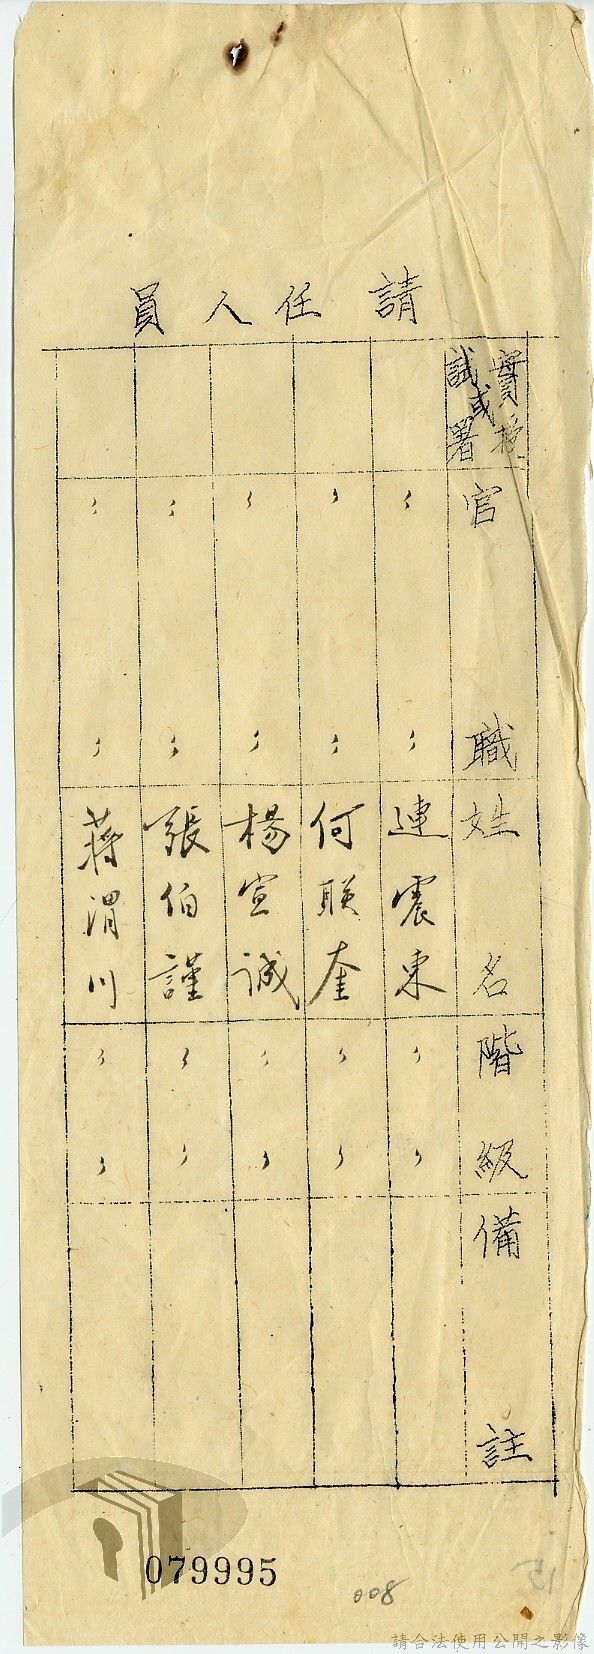 請任人員
實授或試署
官職
姓名
階級
備註
〃 〃 連震東 〃 〃
〃 〃 何联奎 〃 〃
〃 〃 楊宣誠 〃 〃
〃 〃 張伯謹 〃 〃
〃 〃 蔣渭川 〃 〃
079995
008
請合法使用公開之影像